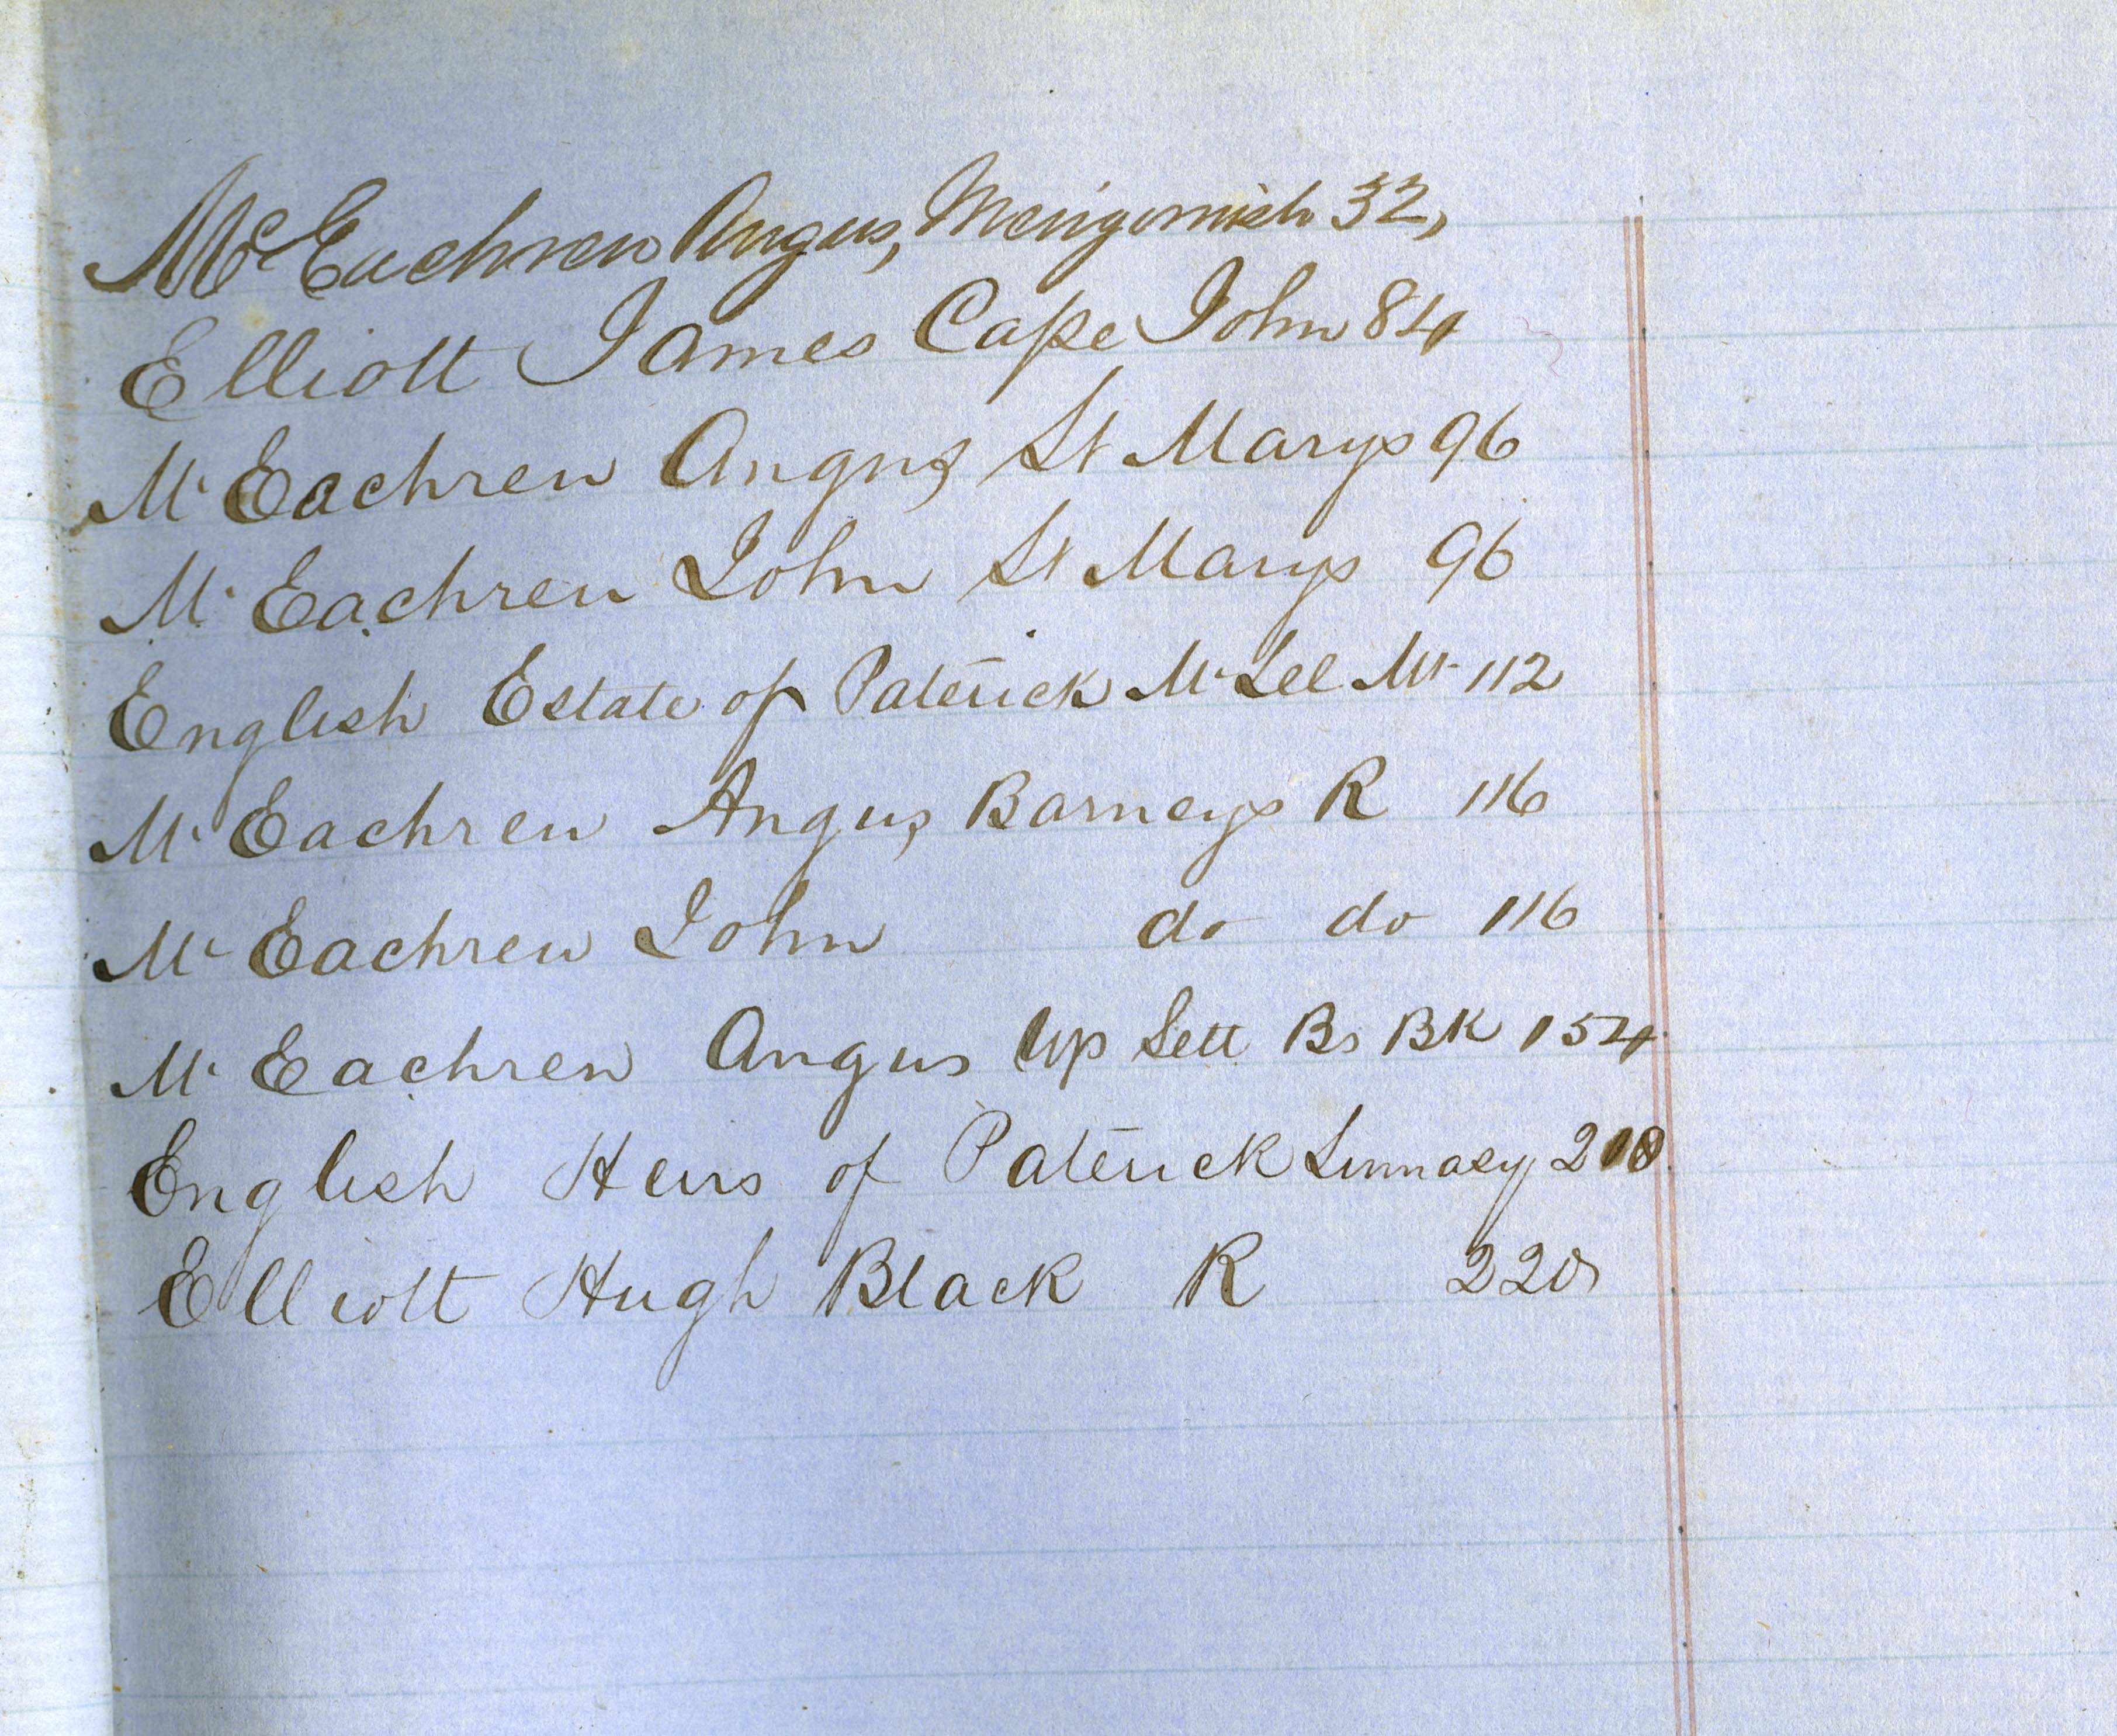 McEachren Angus, Merigomish 32,
Elliott James Cape John 84
Mc Eachren Angus St Marys 96
Mc Eachren John St Marys 96
English Estate of Paterick McLel Mt 112
Mc Eachren Angus Barneys R 116
Mc Eachren John do do 116
Mc Eachren Angus Up Sett Bs BK 154
English Heirs of Paterick
Elliott Hugh Black R 220